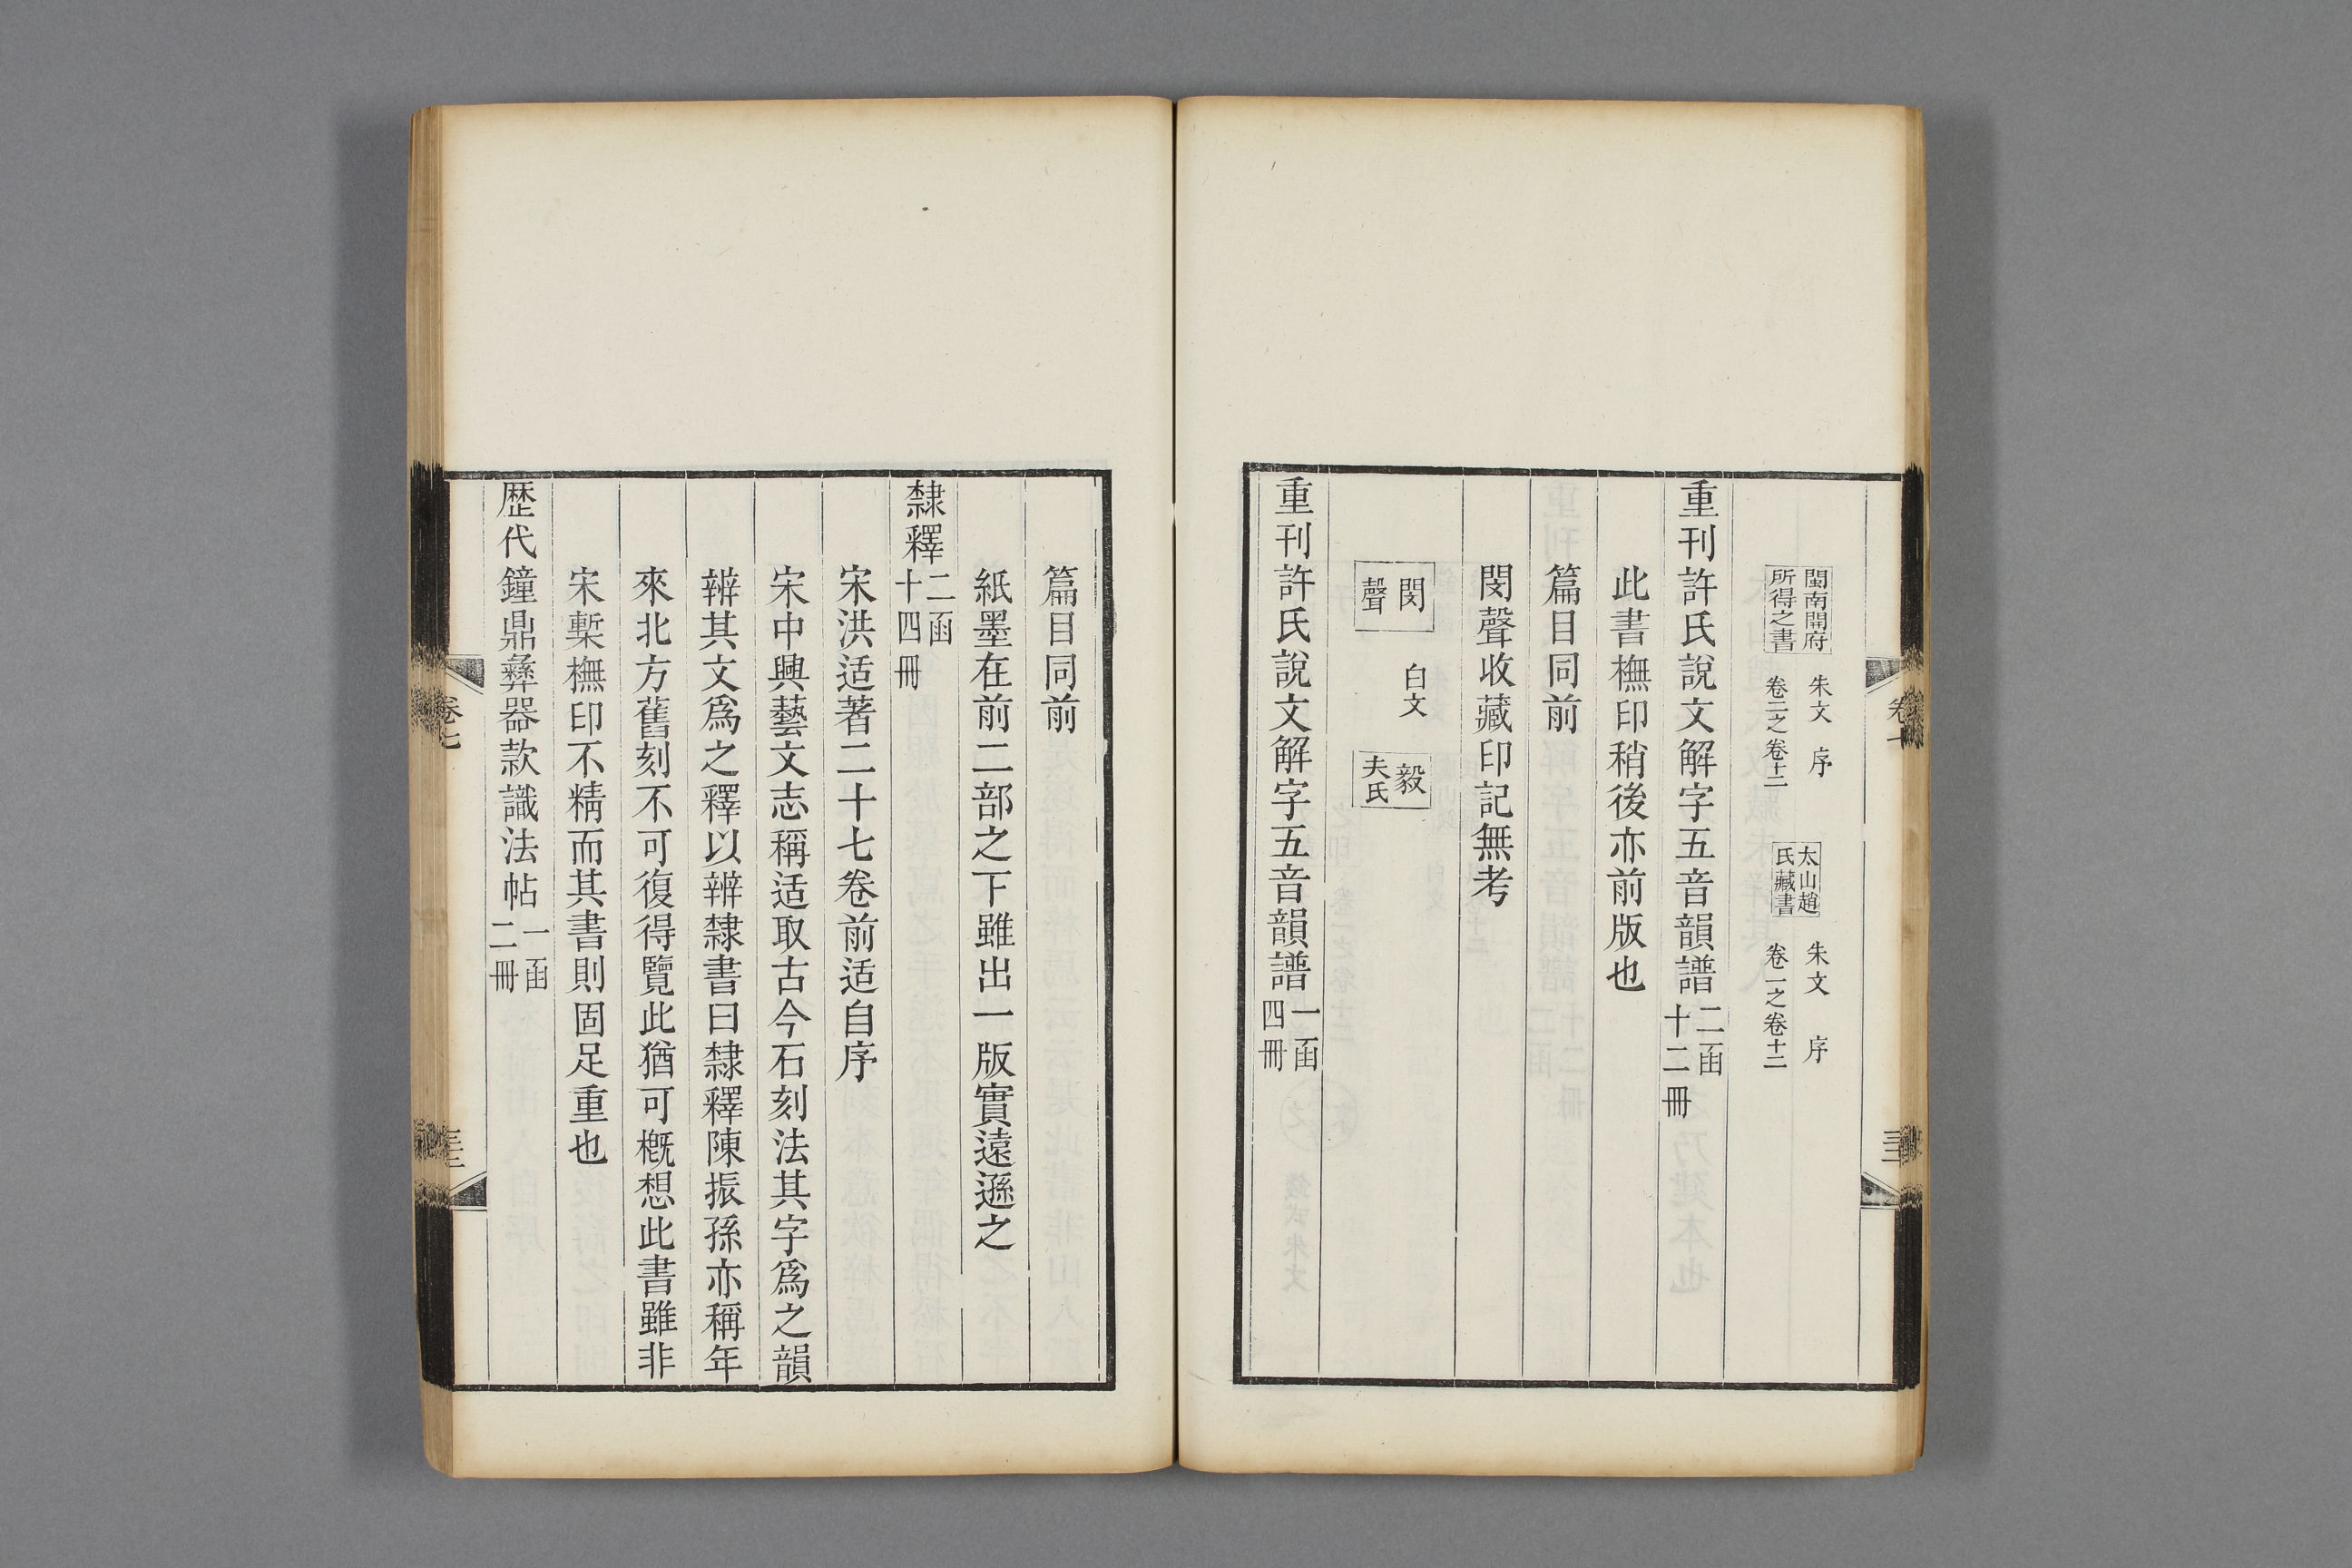 閩南開府所得之書 朱文 序 卷二之卷十二 太山趙氏藏書 朱文 序 卷一之卷十二
重刊許氏說文解字五音韻譜 二函十二冊
此書橅印稍後亦前版也
篇目同前
閔聲收藏印記無考
閔聲 白文 毅夫氏
重刊許氏說文解字五音韻譜 一函四冊
篇目同前
紙墨在前二部之下雖出一版實遠遜之
隸釋 二函十四冊
宋洪适著二十七卷前适自序
宋中興藝文志稱适取古今石刻法其字為之韻
辨其文為之釋以辨隸書曰隸釋陳振孫亦稱年
來北方舊刻不可復得覽此猶可概想此書雖非
宋槧橅印不精而其書則固足重也
歷代鐘鼎彝器款識法帖 一函二冊
卷七